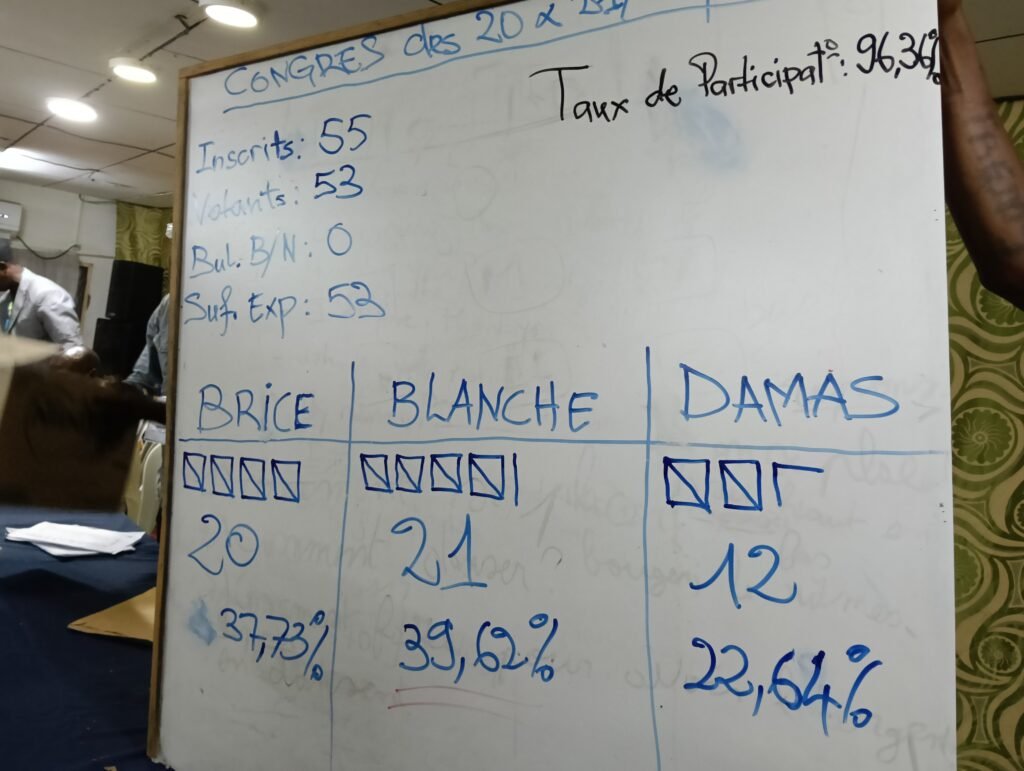 CONGRES des 20 &
Taux de Participat°: 96,36%
Inscrits: 55
Votants: 53
Bul. B/N: 0
Suf. Exp: 53
BRICE BLANCHE DAMAS
20 21 12
37,73% 39,62% 22,64%